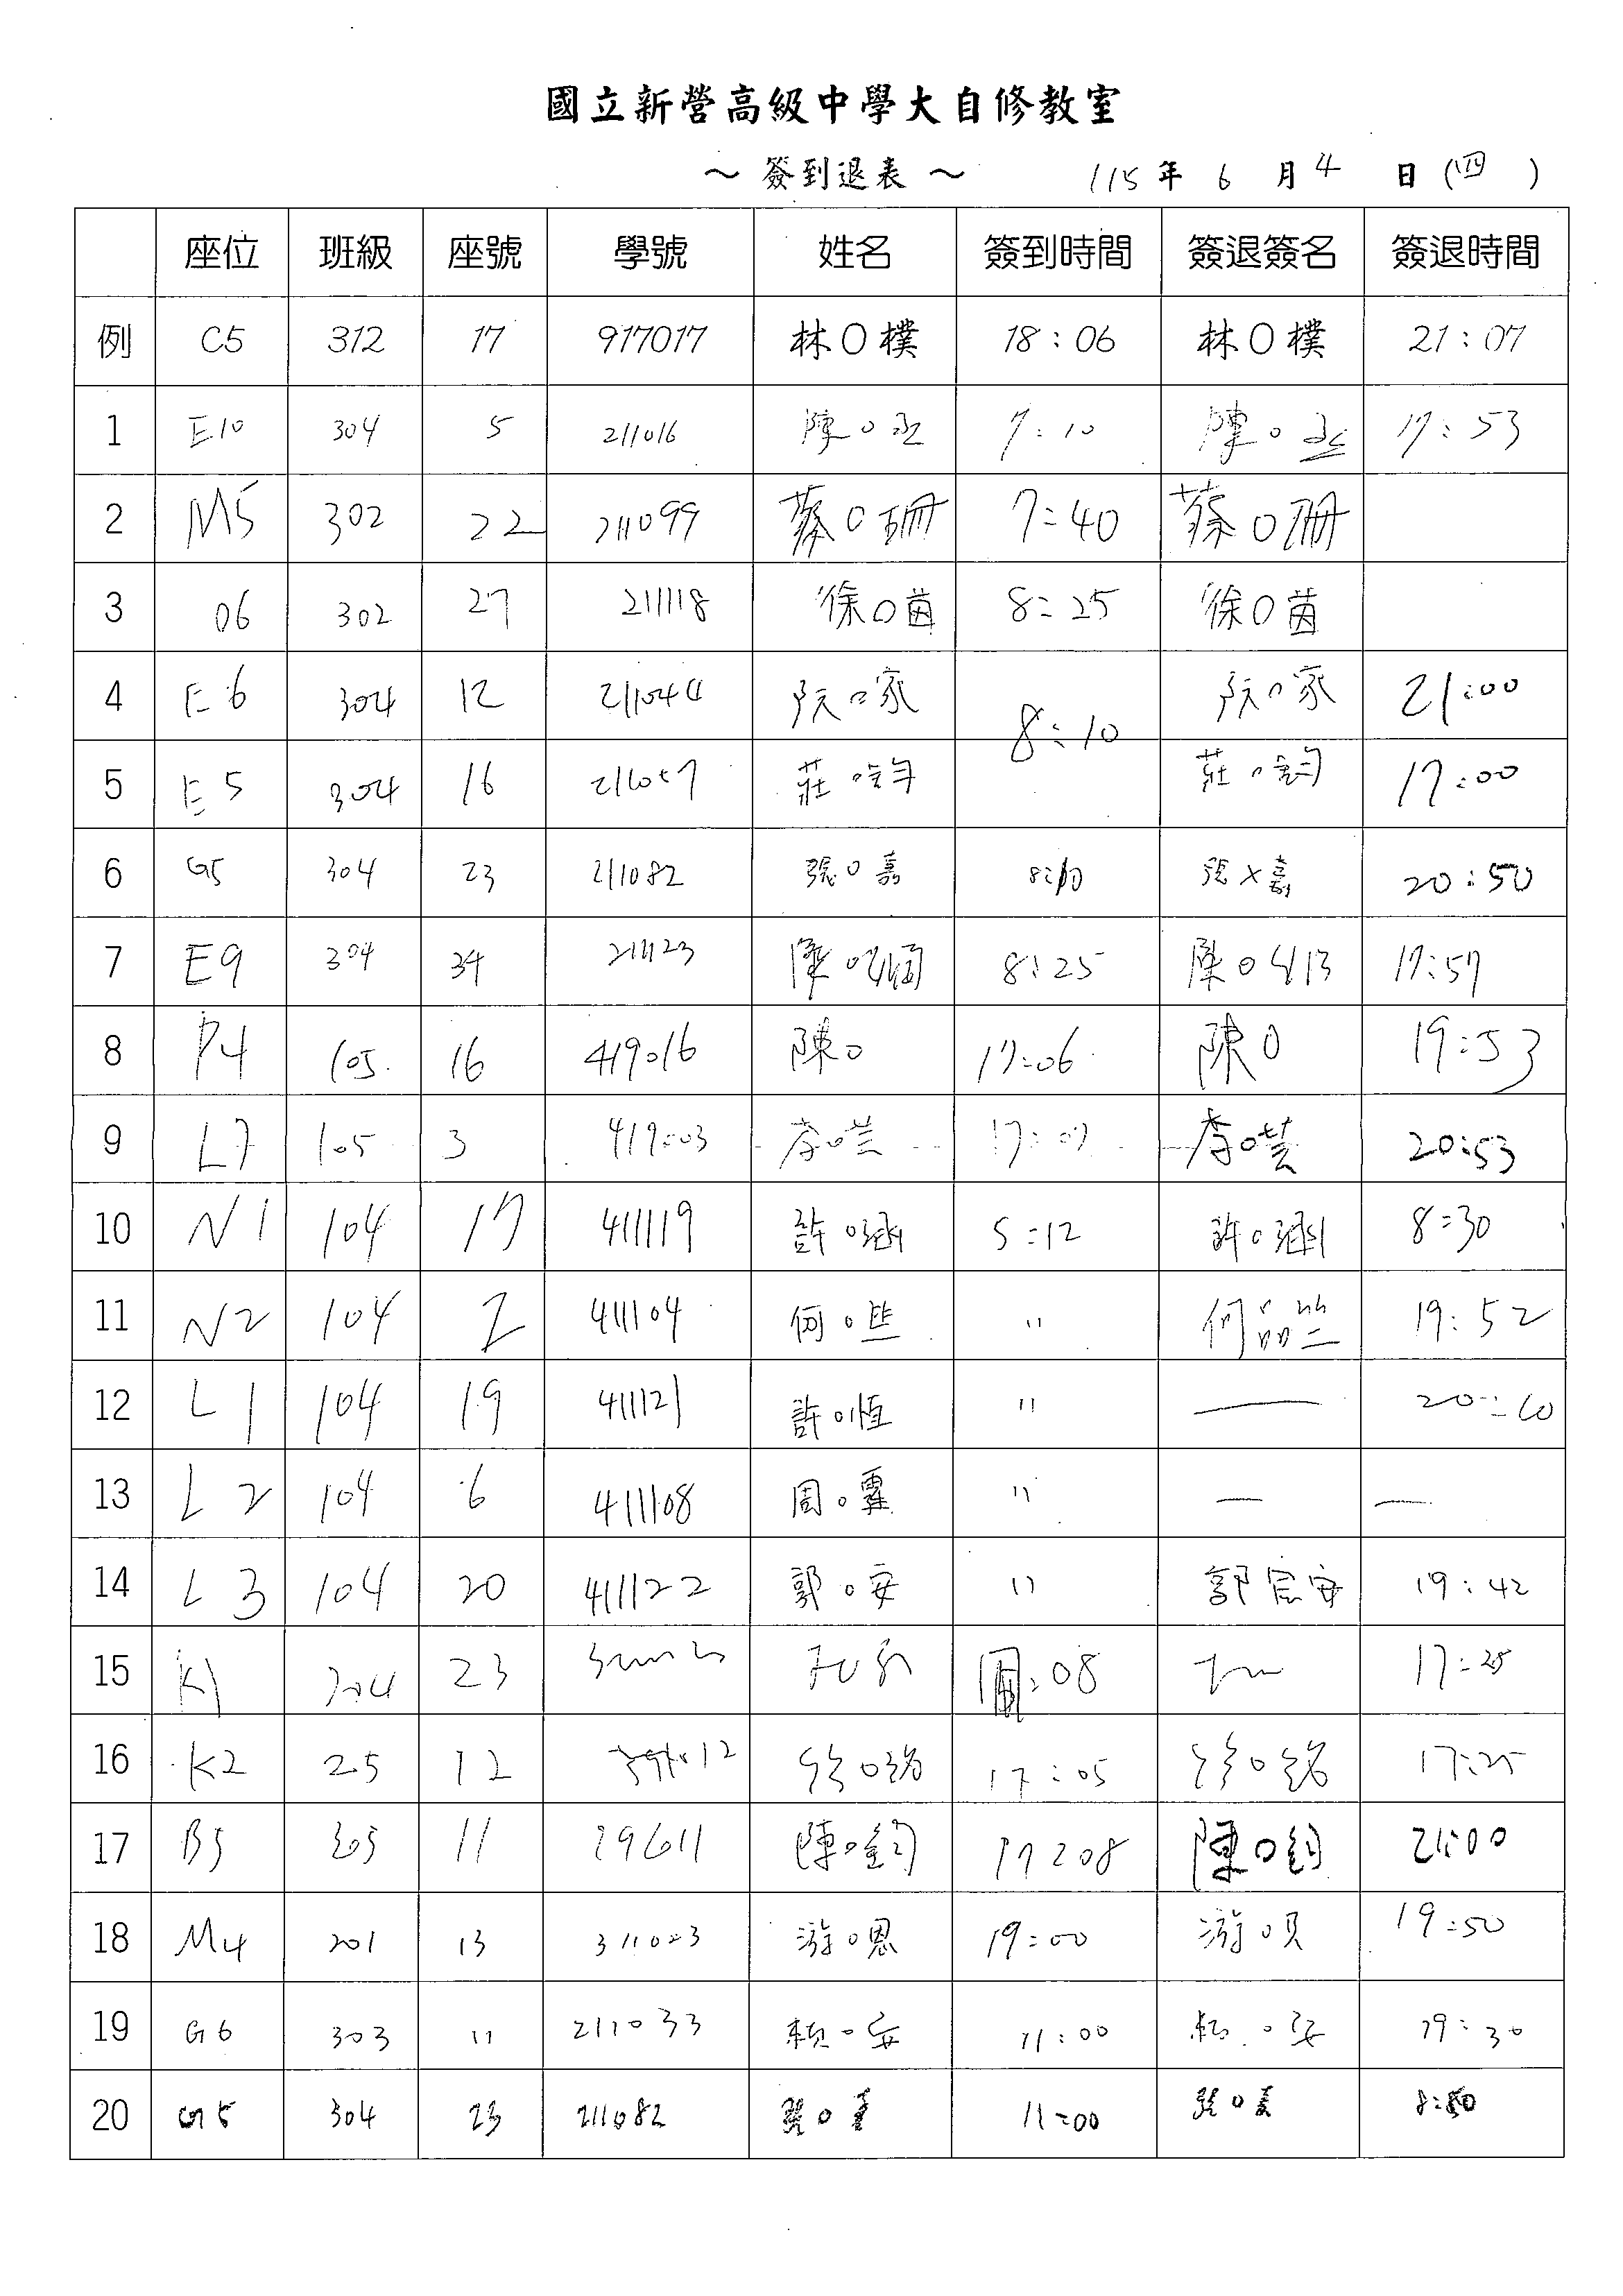 國立新營高級中學大自修教室
～ 簽到退表 ～ 115 年 6 月 4 日 (四)
座位 班級 座號 學號 姓名 簽到時間 簽退簽名 簽退時間
例 C5 312 17 917017 林〇樸 18:06 林〇樸 21:07
1 E10 304 5 211016 陳〇丞 7:10 陳〇丞 17:53
2 M5 302 22 211099 蔡〇珊 7:40 蔡〇珊
3 06 302 27 211118 徐〇茵 8:25 徐〇茵
4 E6 304 12 211044 阮〇家 8:10 阮〇家 21:00
5 E5 304 16 莊〇鈞 莊〇鈞 17:00
6 G5 304 23 211082 張〇嘉 8:10 張×嘉 20:50
7 E9 304 34 211123 陳〇 8:25 陳〇 17:57
8 P4 105 16 419016 陳〇 17:06 陳〇 19:53
9 L7 105 3 419003 李〇芸 17:07 李〇芸 20:53
10 N1 104 17 411119 許〇涵 5:12 許〇涵 8:30
11 N2 104 2 411104 何〇 " 何品 19:52
12 L1 104 19 411121 許〇恆 " — 20:10
13 L2 104 6 411108 周〇霏 " — —
14 L3 104 20 411122 郭〇安 " 郭宸安 19:42
15 K1 304 23 :08 17:25
16 K2 25 12 17:05 17:25
17 B5 305 11 19611 陳〇鈞 17:08 陳〇鈞 21:00
18 M4 201 13 311003 游〇恩 19:00 游〇 19:50
19 G6 303 11 211033 賴〇安 11:00 賴〇安 19:30
20 G5 304 23 211082 張〇嘉 11:00 張〇嘉 8:50